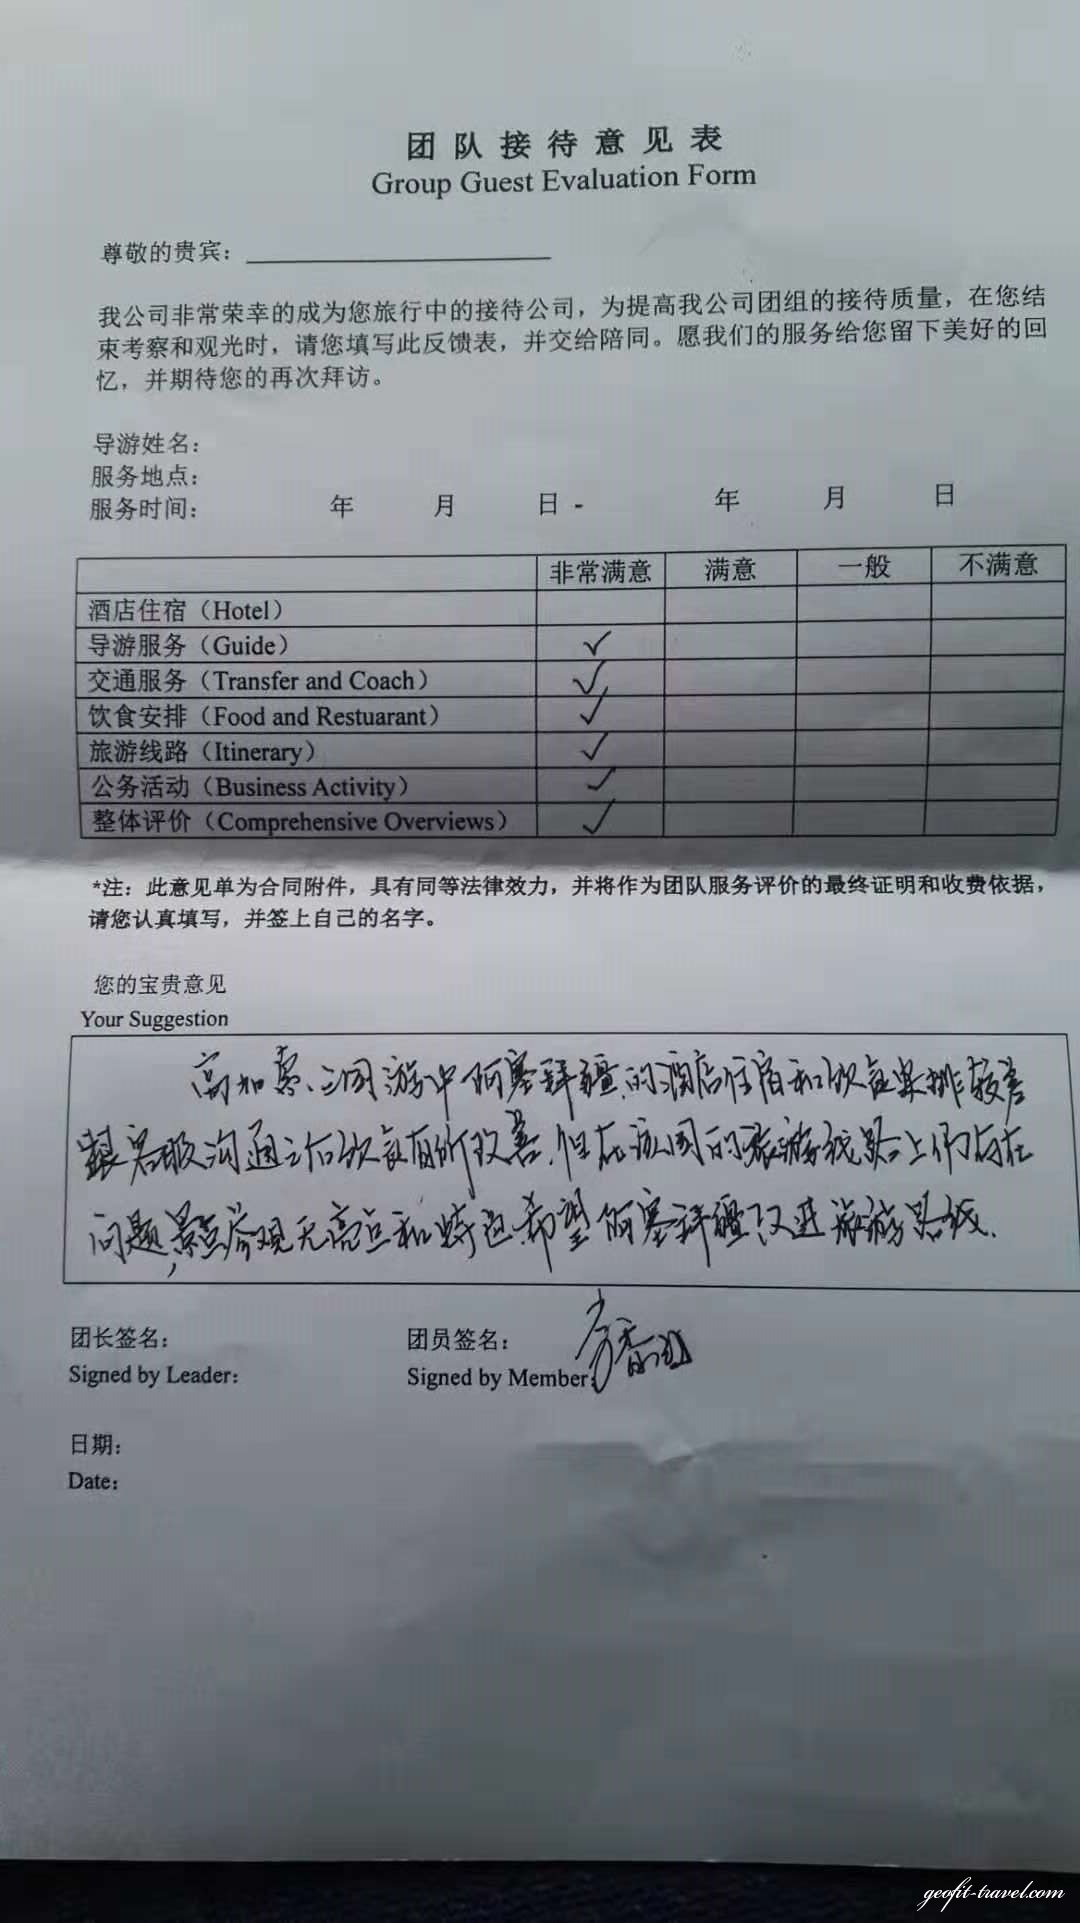 团队接待意见表
Group Guest Evaluation Form
尊敬的贵宾：
我公司非常荣幸的成为您旅行中的接待公司，为提高我公司团组的接待质量，在您结
束考察和观光时，请您填写此反馈表，并交给陪同。愿我们的服务给您留下美好的回
忆，并期待您的再次拜访。
导游姓名：
服务地点：
服务时间： 年 月 日 - 年 月 日
非常满意 满意 一般 不满意
酒店住宿（Hotel）
导游服务（Guide） ✓
交通服务（Transfer and Coach） ✓
饮食安排（Food and Restuarant） ✓
旅游线路（Itinerary） ✓
公务活动（Business Activity） ✓
整体评价（Comprehensive Overviews） ✓
*注：此意见单为合同附件，具有同等法律效力，并将作为团队服务评价的最终证明和收费依据，
请您认真填写，并签上自己的名字。
您的宝贵意见
Your Suggestion
高加索三国游中阿塞拜疆的酒店住宿和饮食安排较差
跟客服沟通之后饮食有所改善，但在该国的旅游线路上仍存在
问题，景点参观无亮点和特色，希望阿塞拜疆改进旅游路线.
团长签名： 团员签名：
Signed by Leader: Signed by Member:
日期：
Date:
geofit-travel.com